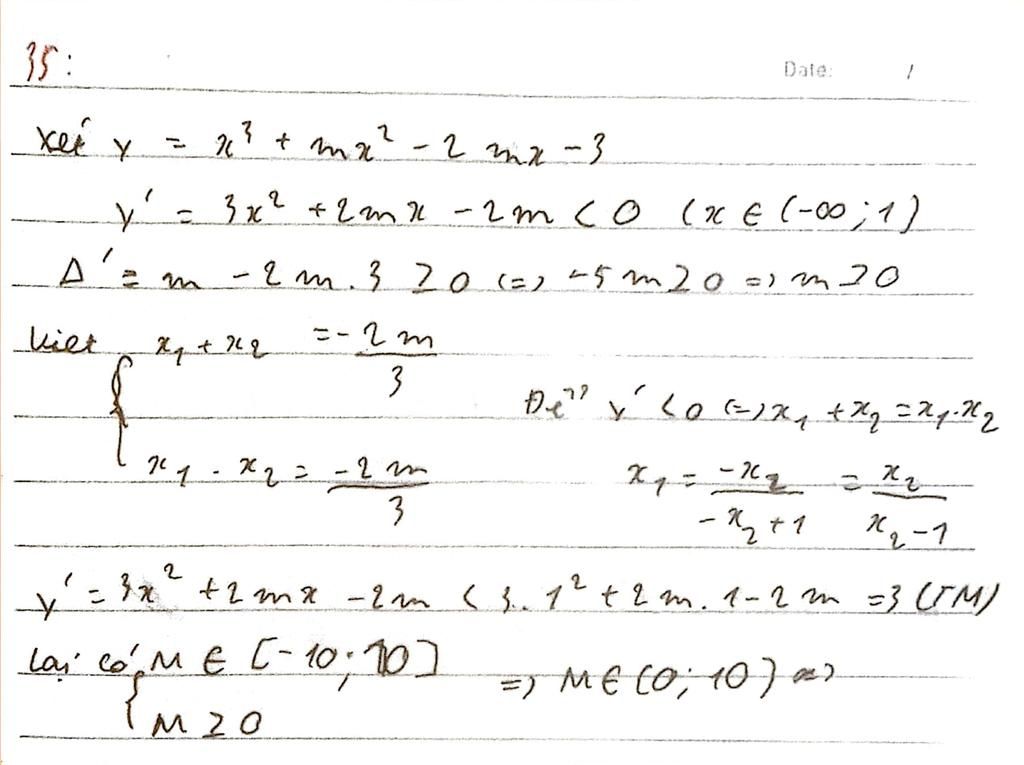 35:
Date: /
Xét y = x³ + mx² - 2mx - 3
y' = 3x² + 2mx - 2m < 0 (x ∈ (-∞; 1)
Δ' = m - 2m.3 ≥ 0 (=) -5m ≥ 0 => m ≥ 0
Viet { x₁ + x₂ = -2m/3
Để y' < 0 (=) x₁ + x₂ = x₁.x₂
x₁ . x₂ = -2m/3
x₁ = -x₂/(-x₂ + 1) = x₂/(x₂ - 1)
y' = 3x² + 2mx - 2m < 3.1² + 2m.1 - 2m = 3 (TM)
Lại có { M ∈ [-10; 10]
M ≥ 0
=> M ∈ (0; 10) =>